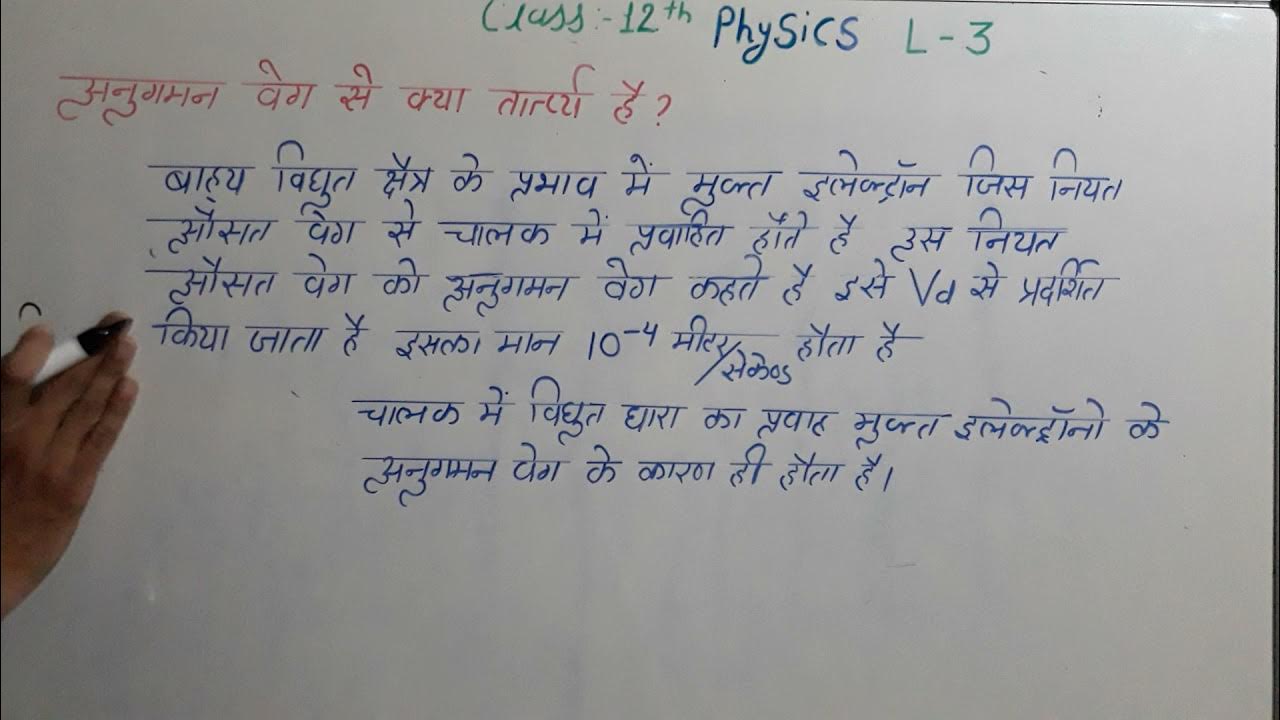 Class:-12th Physics L-3
अनुगमन वेग से क्या तात्पर्य है?
बाह्य विद्युत क्षैत्र के प्रभाव में मुक्त इलेक्ट्रॉन जिस नियत
औसत वेग से चालक में प्रवाहित होते है उस नियत
औसत वेग को अनुगमन वेग कहते है इसे Vd से प्रदर्शित
किया जाता है इसका मान 10⁻⁴ मीटर/सेकेण्ड होता है
चालक में विद्युत धारा का प्रवाह मुक्त इलेक्ट्रॉनो के
अनुगमन वेग के कारण ही होता है।